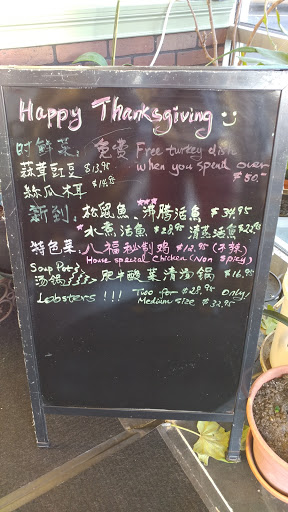 Happy Thanksgiving
时鲜菜: 免费 Free turkey dish
蒜茸豇豆 $13.95 when you spend over
絲瓜木耳 $14.95 $50.-
新到: 松鼠鱼、沸腾活鱼 $34.95
*水煮活鱼 $28.95 清蒸活鱼 $22.95
特色菜: 八福秘制鸡 $12.95 (不辣)
House special chicken (Non Spicy)
Soup Pots
汤锅 肥牛酸菜清汤锅 $16.95
Lobsters !!! Two for $28.95 only!
Medium size $32.95